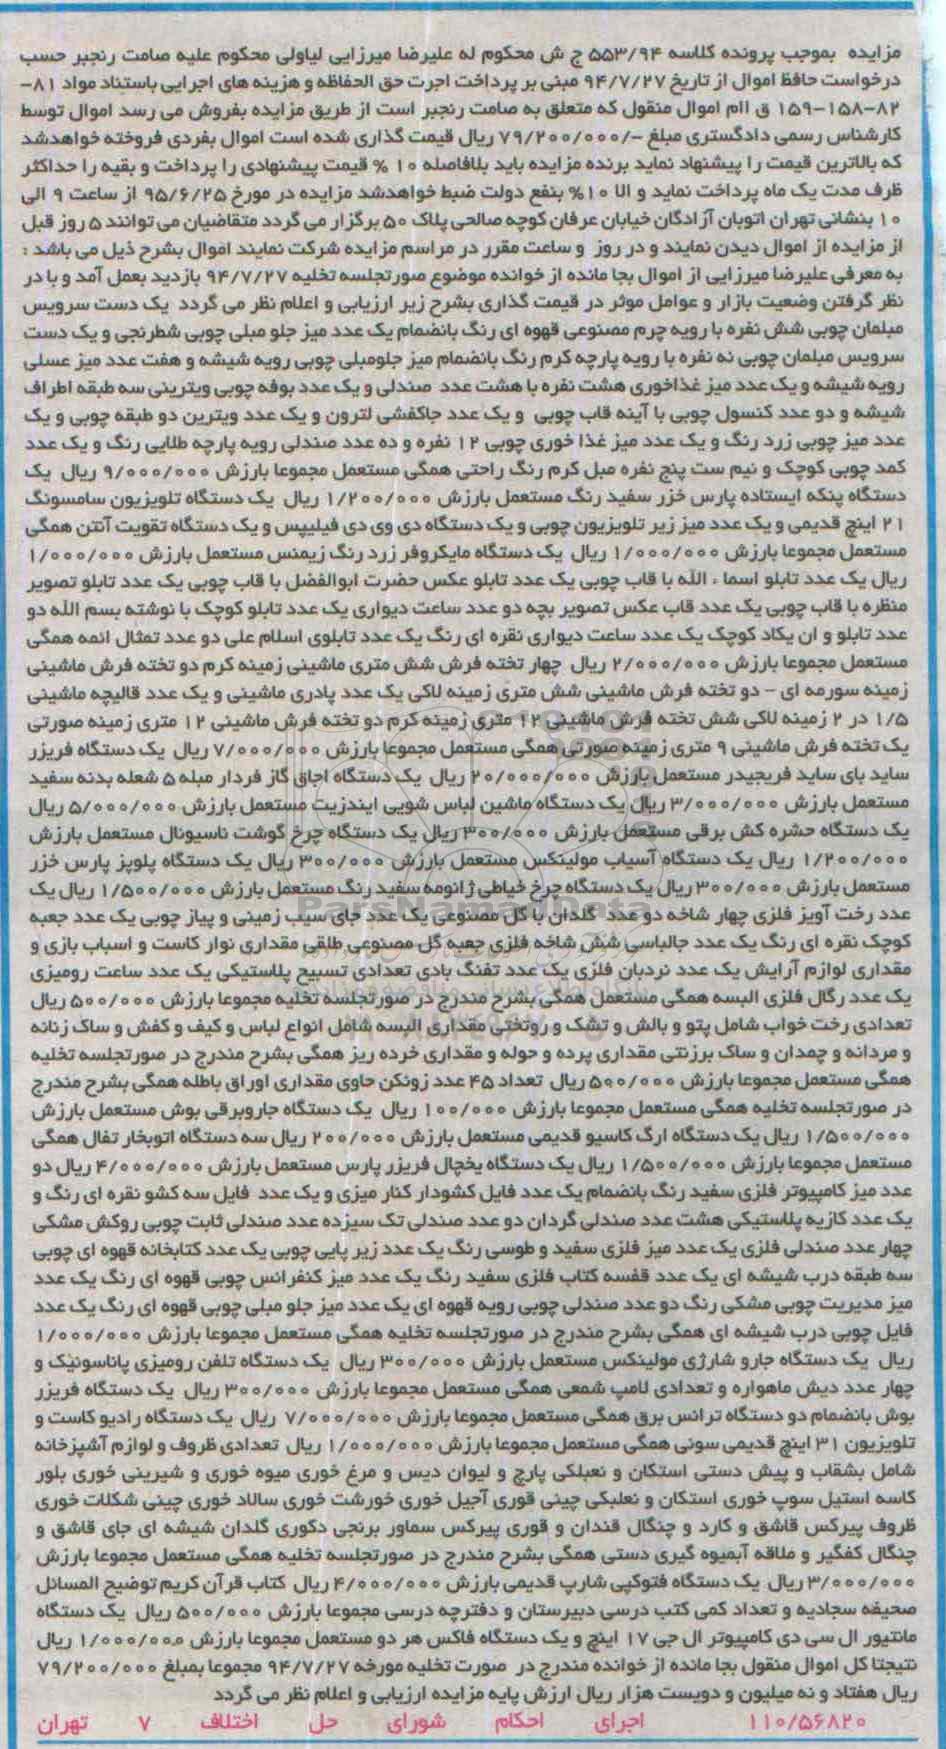 مزایده بموجب پرونده کلاسه ۵۵۳/۹۴ ج ش محکوم له علیرضا میرزایی لیاولی محکوم علیه صامت رنجبر حسب
درخواست حافظ اموال از تاریخ ۹۴/۷/۲۷ مبنی بر پرداخت اجرت حق الحفاظه و هزینه های اجرایی باستناد مواد ۸۱-
۸۲-۱۵۸-۱۵۹ ق اام اموال منقول که متعلق به صامت رنجبر است از طریق مزایده بفروش می رسد اموال توسط
کارشناس رسمی دادگستری مبلغ -/۷۹/۲۰۰/۰۰۰ ریال قیمت گذاری شده است اموال بفردی فروخته خواهدشد
که بالاترین قیمت را پیشنهاد نماید برنده مزایده باید بلافاصله ۱۰ % قیمت پیشنهادی را پرداخت و بقیه را حداکثر
ظرف مدت یک ماه پرداخت نماید و الا ۱۰% بنفع دولت ضبط خواهدشد مزایده در مورخ ۹۵/۶/۲۵ از ساعت ۹ الی
۱۰ بنشانی تهران اتوبان آزادگان خیابان عرفان کوچه صالحی پلاک ۵۰ برگزار می گردد متقاضیان می توانند ۵ روز قبل
از مزایده از اموال دیدن نمایند و در روز و ساعت مقرر در مراسم مزایده شرکت نمایند اموال بشرح ذیل می باشد :
به معرفی علیرضا میرزایی از اموال بجا مانده از خوانده موضوع صورتجلسه تخلیه ۹۴/۷/۲۷ بازدید بعمل آمد و با در
نظر گرفتن وضعیت بازار و عوامل موثر در قیمت گذاری بشرح زیر ارزیابی و اعلام نظر می گردد یک دست سرویس
مبلمان چوبی شش نفره با رویه چرم مصنوعی قهوه ای رنگ بانضمام یک عدد میز جلو مبلی چوبی شطرنجی و یک دست
سرویس مبلمان چوبی نه نفره با رویه پارچه کرم رنگ بانضمام میز جلومبلی چوبی رویه شیشه و هفت عدد میز عسلی
رویه شیشه و یک عدد میز غذاخوری هشت نفره با هشت عدد صندلی و یک عدد بوفه چوبی ویترینی سه طبقه اطراف
شیشه و دو عدد کنسول چوبی با آینه قاب چوبی و یک عدد جاکفشی لترون و یک عدد ویترین دو طبقه چوبی و یک
عدد میز چوبی زرد رنگ و یک عدد میز غذا خوری چوبی ۱۲ نفره و ده عدد صندلی رویه پارچه طلایی رنگ و یک عدد
کمد چوبی کوچک و نیم ست پنج نفره مبل کرم رنگ راحتی همگی مستعمل مجموعا بارزش ۹/۰۰۰/۰۰۰ ریال یک
دستگاه پنکه ایستاده پارس خزر سفید رنگ مستعمل بارزش ۱/۲۰۰/۰۰۰ ریال یک دستگاه تلویزیون سامسونگ
۲۱ اینچ قدیمی و یک عدد میز زیر تلویزیون چوبی و یک دستگاه دی وی دی فیلیپس و یک دستگاه تقویت آنتن همگی
مستعمل مجموعا بارزش ۱/۰۰۰/۰۰۰ ریال یک دستگاه مایکروفر زرد رنگ زیمنس مستعمل بارزش ۱/۰۰۰/۰۰۰
ریال یک عدد تابلو اسما ء الله با قاب چوبی یک عدد تابلو عکس حضرت ابوالفضل با قاب چوبی یک عدد تابلو تصویر
منظره با قاب چوبی یک عدد قاب عکس تصویر بچه دو عدد ساعت دیواری یک عدد تابلو کوچک با نوشته بسم الله دو
عدد تابلو و ان یکاد کوچک یک عدد ساعت دیواری نقره ای رنگ یک عدد تابلوی اسلام علی دو عدد تمثال ائمه همگی
مستعمل مجموعا بارزش ۲/۰۰۰/۰۰۰ ریال چهار تخته فرش شش متری ماشینی زمینه کرم دو تخته فرش ماشینی
زمینه سورمه ای - دو تخته فرش ماشینی شش متری زمینه لاکی یک عدد پادری ماشینی و یک عدد قالیچه ماشینی
۱/۵ در ۲ زمینه لاکی شش تخته فرش ماشینی ۱۲ متری زمینه کرم دو تخته فرش ماشینی ۱۲ متری زمینه صورتی
یک تخته فرش ماشینی ۹ متری زمینه صورتی همگی مستعمل مجموعا بارزش ۷/۰۰۰/۰۰۰ ریال یک دستگاه فریزر
ساید بای ساید فریجیدر مستعمل بارزش ۲۰/۰۰۰/۰۰۰ ریال یک دستگاه اجاق گاز فردار مبله ۵ شعله بدنه سفید
مستعمل بارزش ۳/۰۰۰/۰۰۰ ریال یک دستگاه ماشین لباس شویی ایندزیت مستعمل بارزش ۵/۰۰۰/۰۰۰ ریال
یک دستگاه حشره کش برقی مستعمل بارزش ۳۰۰/۰۰۰ ریال یک دستگاه چرخ گوشت ناسیونال مستعمل بارزش
۱/۲۰۰/۰۰۰ ریال یک دستگاه آسیاب مولینکس مستعمل بارزش ۳۰۰/۰۰۰ ریال یک دستگاه پلوپز پارس خزر
مستعمل بارزش ۳۰۰/۰۰۰ ریال یک دستگاه چرخ خیاطی ژانومه سفید رنگ مستعمل بارزش ۱/۵۰۰/۰۰۰ ریال یک
عدد رخت آویز فلزی چهار شاخه دو عدد گلدان با گل مصنوعی یک عدد جای سیب زمینی و پیاز چوبی یک عدد جعبه
کوچک نقره ای رنگ یک عدد جالباسی شش شاخه فلزی جعبه گل مصنوعی طلقی مقداری نوار کاست و اسباب بازی و
مقداری لوازم آرایش یک عدد نردبان فلزی یک عدد تفنگ بادی تعدادی تسبیح پلاستیکی یک عدد ساعت رومیزی
یک عدد رگال فلزی البسه همگی مستعمل همگی بشرح مندرج در صورتجلسه تخلیه مجموعا بارزش ۵۰۰/۰۰۰ ریال
تعدادی رخت خواب شامل پتو و بالش و تشک و روتختی مقداری البسه شامل انواع لباس و کیف و کفش و ساک زنانه
و مردانه و چمدان و ساک برزنتی مقداری پرده و حوله و مقداری خرده ریز همگی بشرح مندرج در صورتجلسه تخلیه
همگی مستعمل مجموعا بارزش ۵۰۰/۰۰۰ ریال تعداد ۴۵ عدد زونکن حاوی مقداری اوراق باطله همگی بشرح مندرج
در صورتجلسه تخلیه همگی مستعمل مجموعا بارزش ۱۰۰/۰۰۰ ریال یک دستگاه جاروبرقی بوش مستعمل بارزش
۱/۵۰۰/۰۰۰ ریال یک دستگاه ارگ کاسیو قدیمی مستعمل بارزش ۲۰۰/۰۰۰ ریال سه دستگاه اتوبخار تفال همگی
مستعمل مجموعا بارزش ۱/۵۰۰/۰۰۰ ریال یک دستگاه یخچال فریزر پارس مستعمل بارزش ۴/۰۰۰/۰۰۰ ریال دو
عدد میز کامپیوتر فلزی سفید رنگ بانضمام یک عدد فایل کشودار کنار میزی و یک عدد فایل سه کشو نقره ای رنگ و
یک عدد کازیه پلاستیکی هشت عدد صندلی گردان دو عدد صندلی تک سیزده عدد صندلی ثابت چوبی روکش مشکی
چهار عدد صندلی فلزی یک عدد میز فلزی سفید و طوسی رنگ یک عدد زیر پایی چوبی یک عدد کتابخانه قهوه ای چوبی
سه طبقه درب شیشه ای یک عدد قفسه کتاب فلزی سفید رنگ یک عدد میز کنفرانس چوبی قهوه ای رنگ یک عدد
میز مدیریت چوبی مشکی رنگ دو عدد صندلی چوبی رویه قهوه ای یک عدد میز جلو مبلی چوبی قهوه ای رنگ یک عدد
فایل چوبی درب شیشه ای همگی بشرح مندرج در صورتجلسه تخلیه همگی مستعمل مجموعا بارزش ۱/۰۰۰/۰۰۰
ریال یک دستگاه جارو شارژی مولینکس مستعمل بارزش ۳۰۰/۰۰۰ ریال یک دستگاه تلفن رومیزی پاناسونیک و
چهار عدد دیش ماهواره و تعدادی لامپ شمعی همگی مستعمل مجموعا بارزش ۳۰۰/۰۰۰ ریال یک دستگاه فریزر
بوش بانضمام دو دستگاه ترانس برق همگی مستعمل مجموعا بارزش ۷/۰۰۰/۰۰۰ ریال یک دستگاه رادیو کاست و
تلویزیون ۳۱ اینچ قدیمی سونی همگی مستعمل مجموعا بارزش ۱/۰۰۰/۰۰۰ ریال تعدادی ظروف و لوازم آشپزخانه
شامل بشقاب و پیش دستی استکان و نعبلکی پارچ و لیوان دیس و مرغ خوری میوه خوری و شیرینی خوری بلور
کاسه استیل سوپ خوری استکان و نعلبکی چینی قوری آجیل خوری خورشت خوری سالاد خوری چینی شکلات خوری
ظروف پیرکس قاشق و کارد و چنگال قندان و قوری پیرکس سماور برنجی دکوری گلدان شیشه ای جای قاشق و
چنگال کفگیر و ملاقه آبمیوه گیری دستی همگی بشرح مندرج در صورتجلسه تخلیه همگی مستعمل مجموعا بارزش
۳/۰۰۰/۰۰۰ ریال یک دستگاه فتوکپی شارپ قدیمی بارزش ۴/۰۰۰/۰۰۰ ریال کتاب قرآن کریم توضیح المسائل
صحیفه سجادیه و تعداد کمی کتب درسی دبیرستان و دفترچه درسی مجموعا بارزش ۵۰۰/۰۰۰ ریال یک دستگاه
مانتیور ال سی دی کامپیوتر ال جی ۱۷ اینچ و یک دستگاه فاکس هر دو مستعمل مجموعا بارزش ۱/۰۰۰/۰۰۰ ریال
نتیجتا کل اموال منقول بجا مانده از خوانده مندرج در صورت تخلیه مورخه ۹۴/۷/۲۷ مجموعا بمبلغ ۷۹/۲۰۰/۰۰۰
ریال هفتاد و نه میلیون و دویست هزار ریال ارزش پایه مزایده ارزیابی و اعلام نظر می گردد
۱۱۰/۵۶۸۲۰ اجرای احکام شورای حل اختلاف ۷ تهران
ParsNamadData